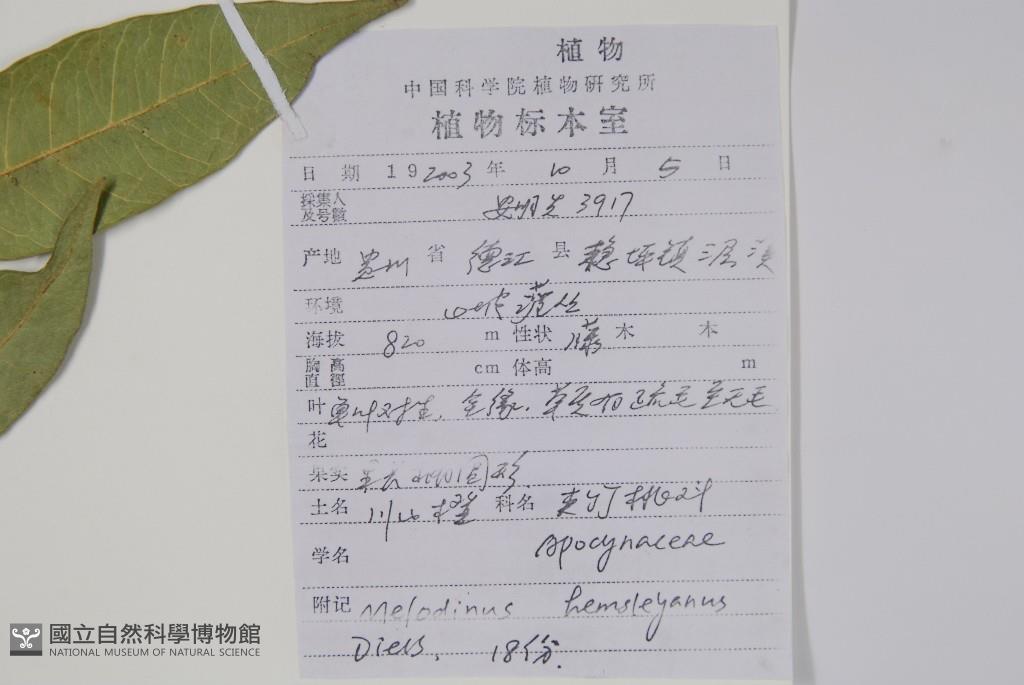 植物
中国科学院植物研究所
植物标本室
日 期 19 2003 年 10 月 5 日
採集人及号数 安明先 3917
产地 贵州 省 德江 县 稳坪镇
环境 山坡灌丛
海拔 820 m 性状 藤 木 木
胸高直徑 cm 体高 m
叶 单叶对生, 全缘.
花
果实 果长
土名 川山橙 科名 夹竹桃科
学名 Apocynaceae
附记 Melodinus hemsleyanus
Diels. 18份.
國立自然科學博物館
NATIONAL MUSEUM OF NATURAL SCIENCE